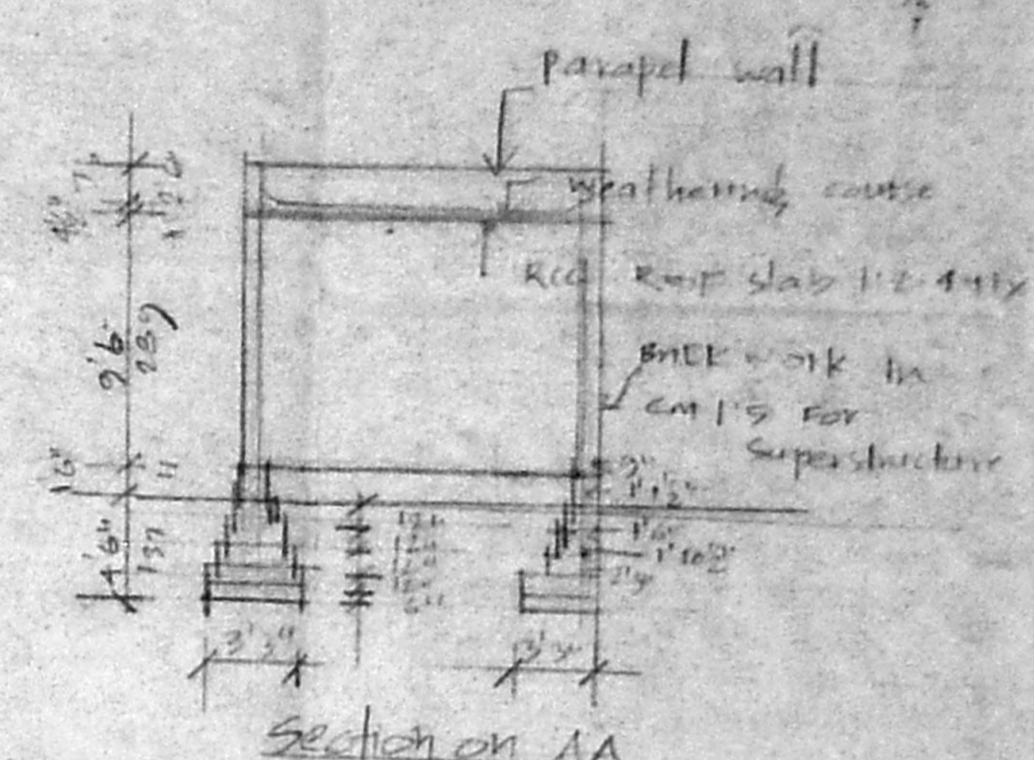 parapet wall
weathering course
RCC Roof slab 1:2:4 mix
Brick work in
CM 1:5 For
Superstructure
9'6"
289
1'6"
4'6"
137
9"
1'1½"
1'6"
1'10½"
2'3"
6"
3'3"
3'3"
Section on AA